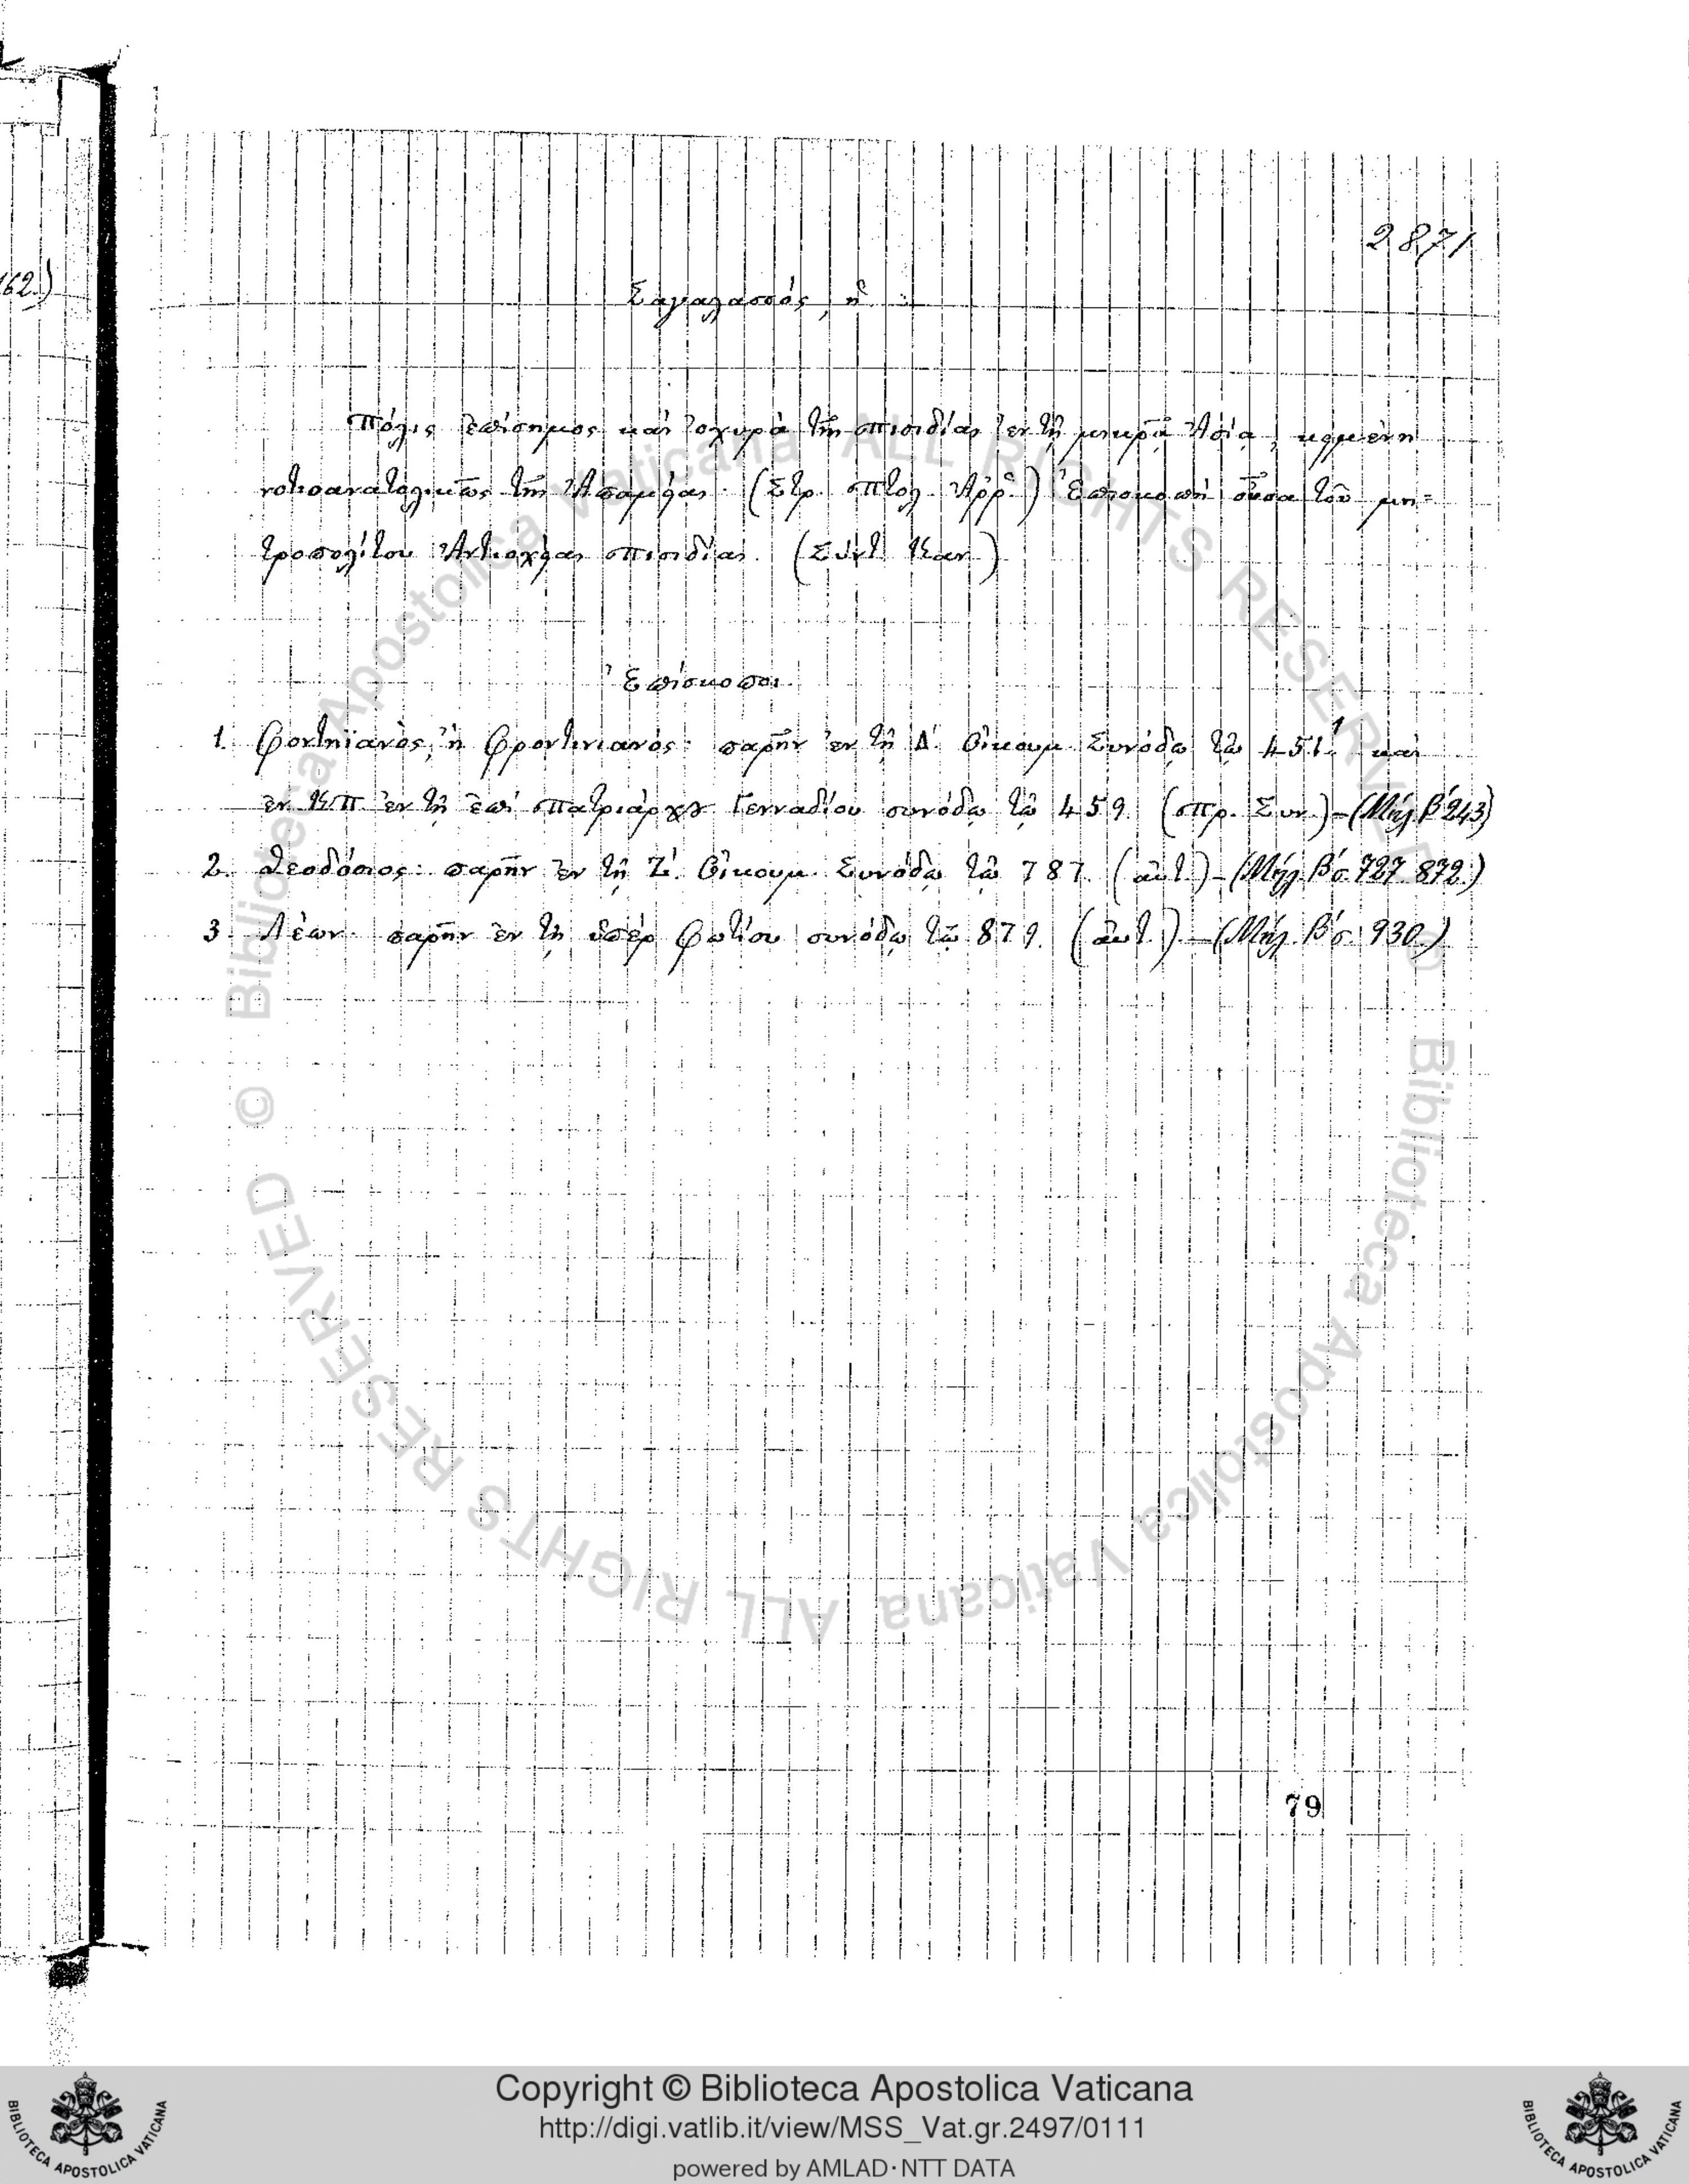 162.)
2871
Σαγαλασσός, ἡ :
Πόλις ἐπίσημος καὶ ἰσχυρὰ τῆς Πισιδίας ἐν τῇ μικρᾷ Ἀσίᾳ, κειμένη
νοτιοανατολικῶς τῆς Ἀπαμείας. (Στρ. Πτολ. Ἀῤῥ.) Ἐπισκοπὴ οὖσα τοῦ μη=
τροπολίτου Ἀντιοχείας Πισιδίας. (Σύντ. Καν.)
Ἐπίσκοποι.
1. Φοντηϊανὸς, ἢ Φροντινιανός: παρῆν ἐν τῇ Δ΄. Οἰκουμ. Συνόδῳ τῷ 451. καὶ
ἐν ΚΠ ἐν τῇ ἐπὶ Πατριάρχου Γενναδίου συνόδῳ τῷ 459. (Πρ. Συν.) – (Μήλ β΄ 243)
2. Θεοδόσιος: παρῆν ἐν τῇ Ζ΄. Οἰκουμ. Συνόδῳ τῷ 787. (αὐτ.) – (Μήλ β΄ σ. 727. 872.)
3. Λέων. παρῆν ἐν τῇ ὑπὲρ Φωτίου συνόδῳ τῷ 879. (αὐτ.) – (Μήλ. β΄ σ. 930.)
79
© Biblioteca Apostolica Vaticana ALL RIGHTS RESERVED
© Biblioteca Apostolica Vaticana ALL RIGHTS RESERVED
Copyright © Biblioteca Apostolica Vaticana
http://digi.vatlib.it/view/MSS_Vat.gr.2497/0111
powered by AMLAD·NTT DATA
BIBLIOTECA APOSTOLICA VATICANA
BIBLIOTECA APOSTOLICA VATICANA